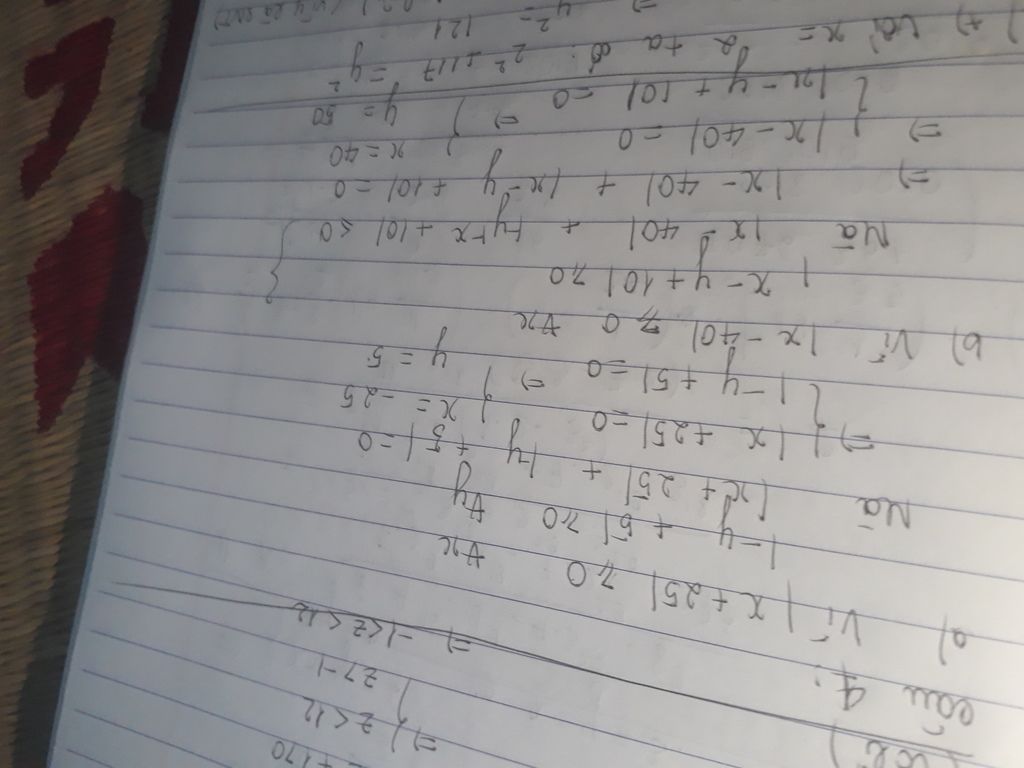 = +170
=> } z < 12
z > -1 => -1 < z < 12
Câu 4:
a) Vì |x + 25| ≥ 0 ∀x
|-y + 5| ≥ 0 ∀y
Mà |x + 25| + |-y + 5| = 0
=> { |x + 25| = 0 } x = -25
{ |-y + 5| = 0 => } y = 5
b) Vì |x - 40| ≥ 0 ∀x
|x - y + 10| ≥ 0 }
Mà |x - 40| + |-y + x + 10| ≤ 0
=> |x - 40| + |x - y + 10| = 0
=> { |x - 40| = 0 } x = 40
{ |x - y + 10| = 0 => } y = 50
+) Với x = 2 ta có: 2² + 117 = y²
=> y² = 121